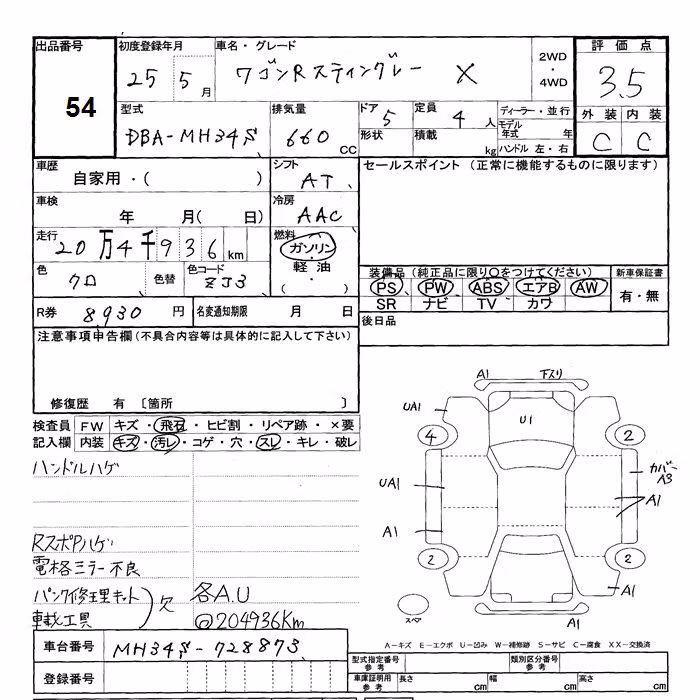 出品番号 初度登録年月 車名・グレード 2WD 評価点
54 25 5月 ワゴンRスティングレー X ・ 3.5
4WD
型式 排気量 ドア 定員 ディーラー・並行 外装 内装
DBA-MH34S 660 CC 5 4人 モデル年式 年 C C
形状 積載 kg ハンドル 左・右
車歴 シフト セールスポイント (正常に機能するものに限ります)
自家用・( ) AT
車検 冷房
年 月( 日) AAC
走行 燃料
20万4千936km ガソリン
色 色替 色コード ・軽油 装備品 (純正品に限り○をつけてください) 新車保証書
クロ ZJ3 ・( ) PS PW ABS エアB AW 有・無
SR ナビ TV カワ
R券 8,930円 名変通知期限 月 日 後日品
注意事項申告欄 (不具合内容等は具体的に記入して下さい)
修復歴 有 〔箇所 〕
検査員 FW キズ・飛石・ヒビ割・リペア跡・×要
記入欄 内装 キズ・汚レ・コゲ・穴・スレ・キレ・破レ
ハンドルハゲ
RスポPハゲ
電格ミラー不良
パンク修理キット
車載工具
欠
各A.U
@204936Km
A1 下スリ
UA1 U1
4 2
カバーA3
UA1 A1
A1
2 2
A1
スペア A1
A-キズ E-エクボ U-凹み W-補修跡 S-サビ C-腐食 XX-交換済
車台番号 MH34S-728873
登録番号
型式指定番号 参考 類別区分番号 参考
車庫証明用 参考 長さ cm 幅 cm 高さ cm